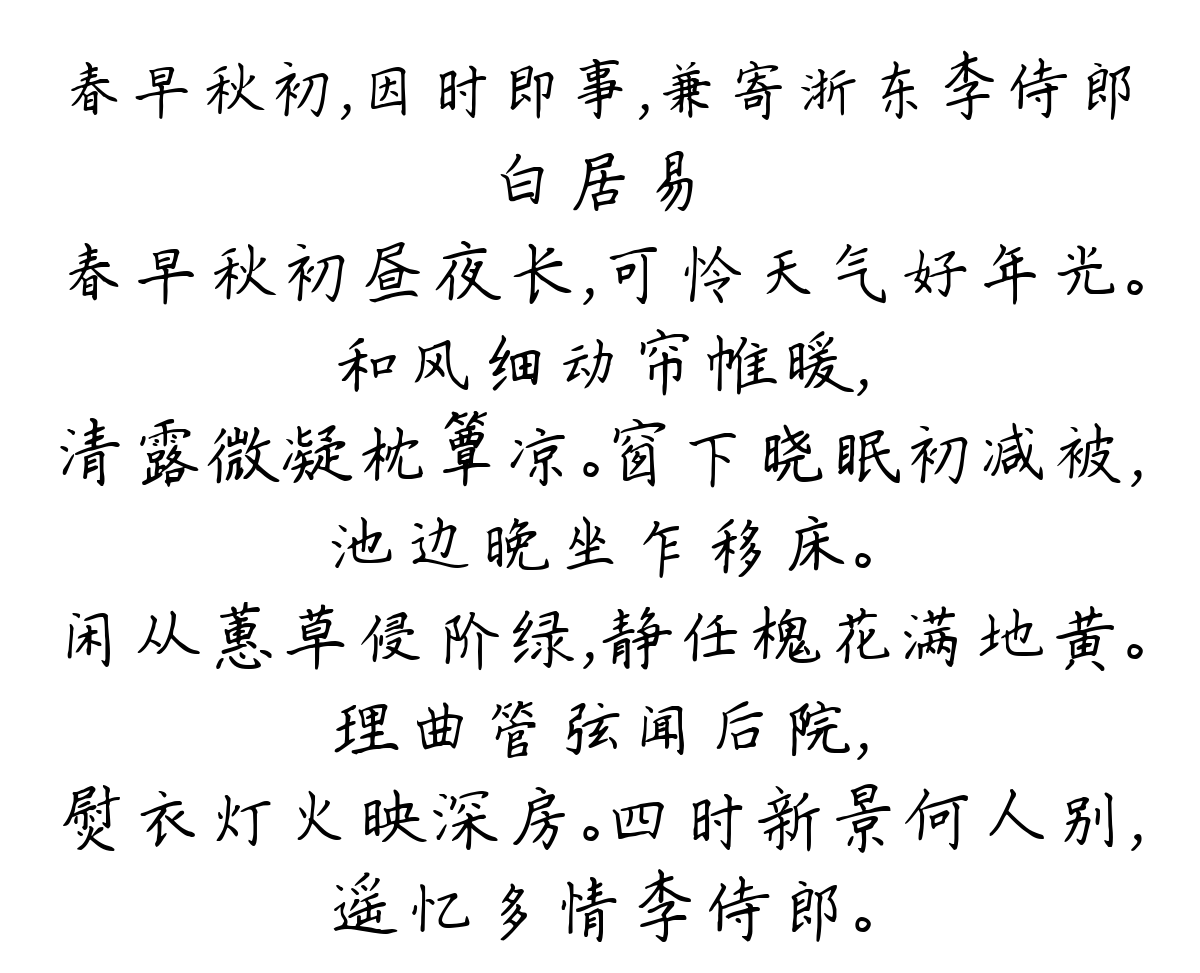 春早秋初,因时即事,兼寄浙东李侍郎
白居易
春早秋初昼夜长,可怜天气好年光。
和风细动帘帷暖,
清露微凝枕簟凉。窗下晓眠初减被,
池边晚坐乍移床。
闲从蕙草侵阶绿,静任槐花满地黄。
理曲管弦闻后院,
熨衣灯火映深房。四时新景何人别,
遥忆多情李侍郎。